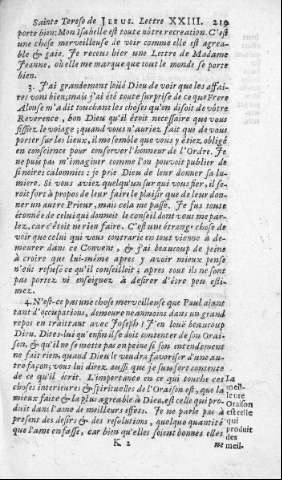 Sainte Terese de JESUS. Lettre XXIII. 219
porte bien; Mon Isabelle est toute nôtre recreation. C'est
une chose merveilleuse de voir comme elle est agrea-
ble & gaie. Je receus hier une Lettre de Madame
Jeanne, où elle me marque que tout le monde se porte
bien.
3. J'ai grandement loüé Dieu de voir que les affai-
res vont bien; mais j'ai été toute surprise de ce que Frere
Alonse m'a dit touchant les choses qu'on disoit de vôtre
Reverence, bon Dieu qu'il étoit necessaire que vous
fissiez le voiage; quand vous n'auriez fait que de vous
porter sur les lieux, il me semble que vous y étiez obligé
en conscience pour conserver l'honneur de l'Ordre. Je
ne puis pas m'imaginer comme l'on pouvoit publier de
si noires calomnies; je prie Dieu de leur donner sa lu-
miere. Si vous aviez quelqu'un sur qui vous fier, il se-
roit fort à propos de leur faire le plaisir que de leur don-
ner un autre Prieur, mais cela me passe. Je fus toute
étonnée de celui qui donnoit le conseil dont vous me par-
lez, car c'étoit ne rien faire. C'est une étrange chose de
voir que celui qui vous contrarie en tout vienne à de-
meurer dans ce Convent, & j'ai beaucoup de peine
à croire que lui-même apres y avoir mieux pensé
n'eût refusé ce qu'il conseilloit; apres tout ils ne sont
pas portez ni enseignez à desirer d'être peu esti-
mez.
4. N'est-ce pas une chose merveilleuse que Paul aiant
tant d'occupations, demeure neanmoins dans un grand
repos en traitant avec Joseph? J'en louë beaucoup
Dieu. Dites-lui qu'enfin il se doit contenter de son Orai-
son, & qu'il ne se mette pas en peine si son entendement
ne fait rien, quand Dieu le veudra favoriser d'une au-
tre façon; vous lui direz aussi que je suis fort contente
de ce qu'il écrit. L'importance en ce qui touche ces
choses interieures & spirituelles de l'Oraison est, que la
mieux faite & la plus agreable à Dieu, est celle qui pro-
duit dans l'ame de meilleurs effets. Je ne parle pas à
present des desirs & des resolutions, quelque quantité
que l'ame en fasse, car bien qu'elles soient bonnes elles
La
meil-
leure
Oraison
est celle
qui
produit
des
meil-
K 2
ne